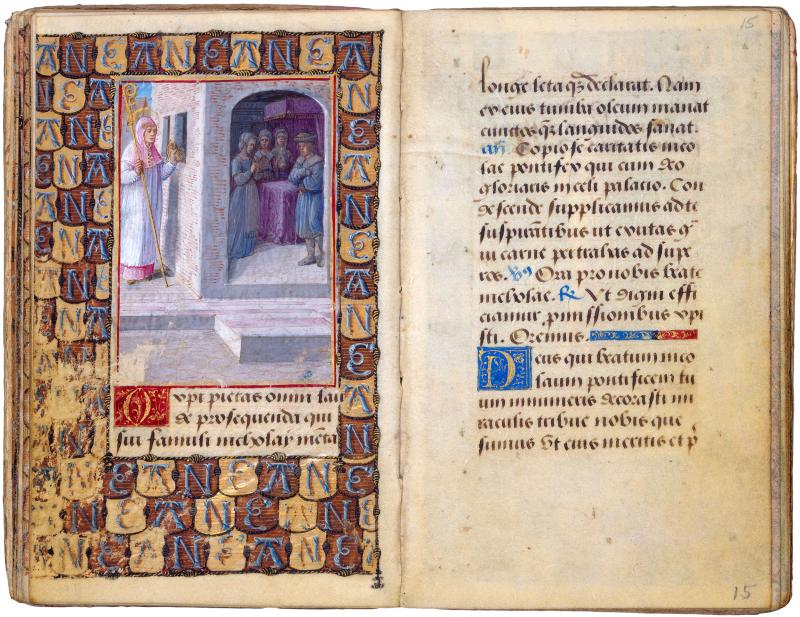 O xp̄i pietas om̄i lau
de prosequenda qui
sui famuli nicholay merita
15
longe lata q̄ declarat. Nam
ex eius tumba oleum manat
cunctos q̄ languidos sanat.
an̄. Copiose caritatis nico
lae pontifex qui cum deo
gloriaris in celi palacio. Con
descende supplicamus ad te
suspirantibus ut exutas g̃
ui carne pertrahas ad supe
ros. v̄s Ora pro nobis beate
nicholae. R̄ Vt digni effi
ciamur p̄missionibus xp̄i
sti. Oremus.
Deus qui beatum nico
laum pontificem tu
um innumeris decorasti mi
raculis tribue nobis que
sumus vt eius meritis et p̄
15